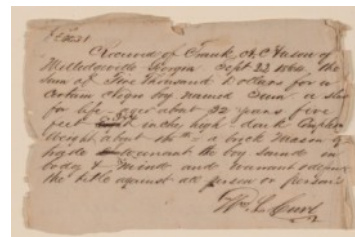 Received of Frank A. C. Vason of
Milledgeville Georgia Sept 22 1864 the
sum of Five Thousand Dollars for a
certain Negro boy named Sam a slave
for life aged about 32 years five
feet inches high
Weight about a brick Mason by
trade warrant the boy sound in
body & Mind and warrant & defend
the title against all person or persons
Wm. L.